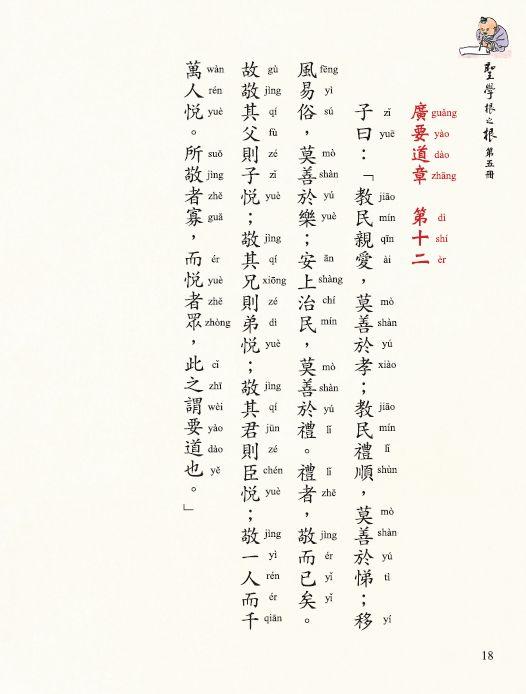 聖學根之根 第五冊
廣要道章 第十二
guǎng yào dào zhāng dì shí èr
子曰：「教民親愛，莫善於孝；教民禮順，莫善於悌；移
zǐ yuē jiāo mín qīn ài mò shàn yú xiào jiāo mín lǐ shùn mò shàn yú tì yí
風易俗，莫善於樂；安上治民，莫善於禮。禮者，敬而已矣。
fēng yì sú mò shàn yú yuè ān shàng chí mín mò shàn yú lǐ lǐ zhě jìng ér yǐ yǐ
故敬其父則子悅；敬其兄則弟悅；敬其君則臣悅；敬一人而千
gù jìng qí fù zé zǐ yuè jìng qí xiōng zé dì yuè jìng qí jūn zé chén yuè jìng yì rén ér qiān
萬人悅。所敬者寡，而悅者眾，此之謂要道也。」
wàn rén yuè suǒ jìng zhě guǎ ér yuè zhě zhòng cǐ zhī wèi yào dào yě
18